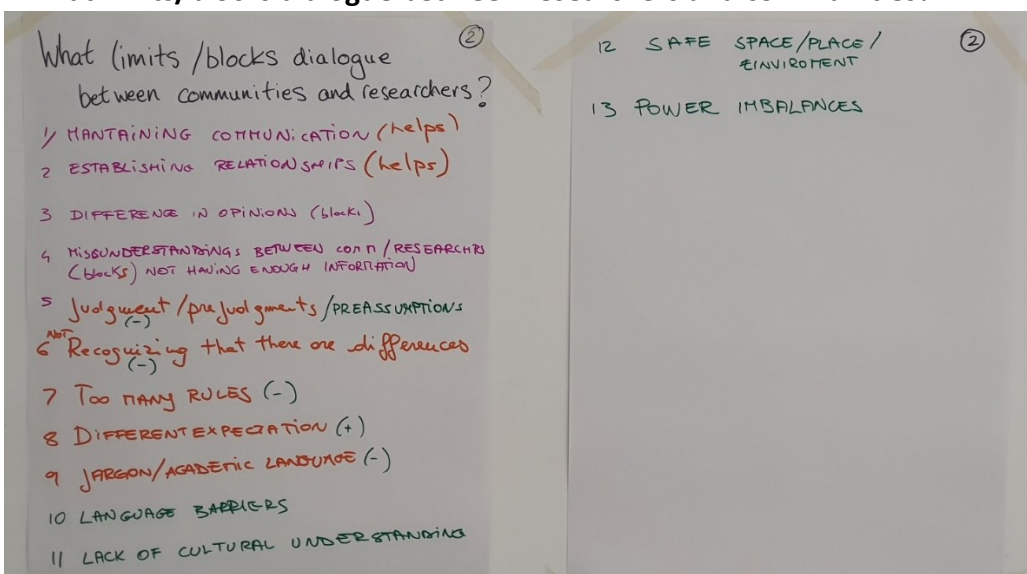 ②
What limits/blocks dialogue
between communities and researchers?
1/ MANTAINING COMMUNICATION (helps)
2 ESTABLISHING RELATIONSHIPS (helps)
3 DIFFERENCE IN OPINIONS (blocks)
4 MISSUNDERSTANDINGS BETWEEN COMM/RESEARCHRS
(blocks) NOT HAVING ENOUGH INFORMATION
5 Judgment/prejudgments/PREASSUMPTIONS
(-)
NOT
6 Recognizing that there are differences
(-)
7 TOO MANY RULES (-)
8 DIFFERENT EXPECTATION (+)
9 JARGON/ACADEMIC LANGUAGE (-)
10 LANGUAGE BARRIERS
11 LACK OF CULTURAL UNDERSTANDING
②
12 SAFE SPACE/PLACE/
EINVIROMENT
13 POWER IMBALANCES